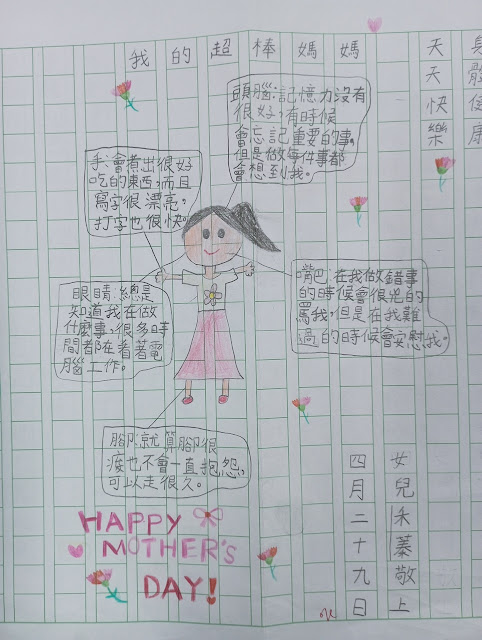 我的超棒媽媽
身體健康
天天快樂
頭腦:記憶力沒有
很好,有時候
會忘記重要的事,
但是做每件事都
會想到我。
手:會煮出很好
吃的東西,而且
寫字很漂亮,
打字也很快。
眼睛:總是
知道我在做
什麼事,很多時
間都在看著電
腦工作。
嘴巴:在我做錯事
的時候會很兇的
罵我,但是在我難
過的時候會安慰我。
腳:就算腳很
痠也不會一直抱怨,
可以走很久。
HAPPY
MOTHER'S
DAY!
女兒禾蓁敬上
四月二十九日